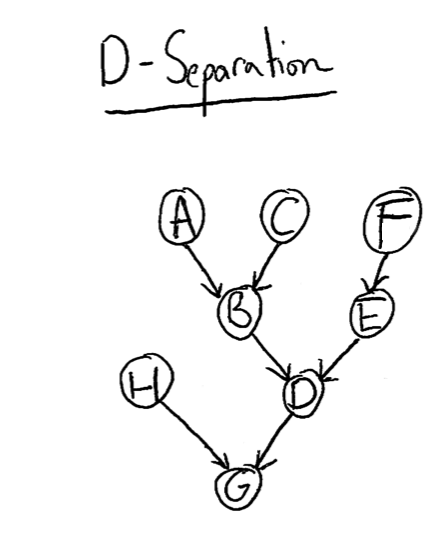 D-Separation
A C F
B E
H D
G